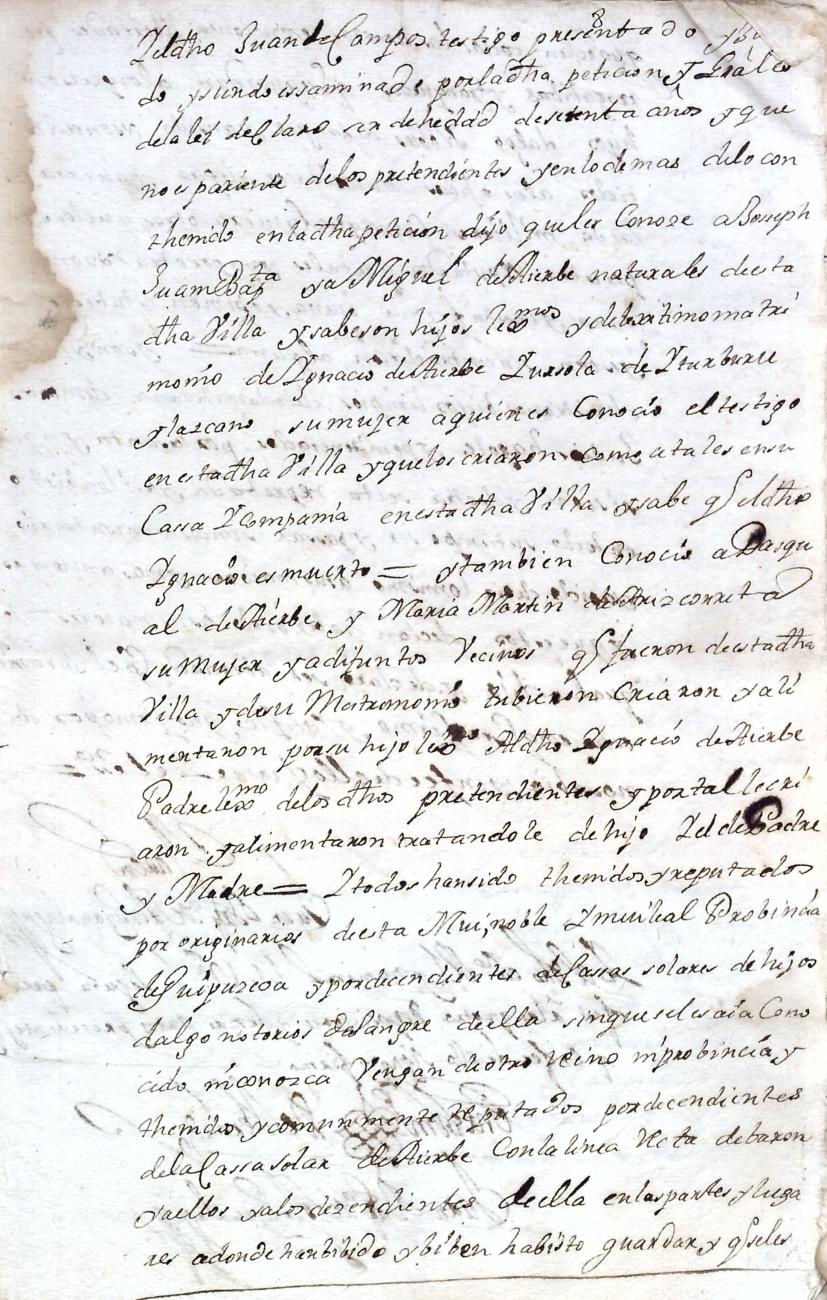 8
Yeldho Juan de Campos testigo presentado y Ju
do y siendo esaminado por la dha peticion y Grãles
dela lei declaro ser de hedad de setenta años y que
no es pariente delos pretendientes y en lo demas delo con
thenido en la dha peticion dijo que les Conoze a Joseph
Juan Bapta y a Miguel de Aierbe naturales de esta
dha Villa y sabe son hijos lexmos y de lexitimo matri
monio de Ygnacio de Aierbe Y ursola de Yturburu
y lazcano su mujer a quienes Conocio el testigo
en esta dha Villa y que los criaron como a tales en su
Cassa Y compania en esta dha Villa y sabe q el dho
Ygnacio es muerto = y tambien Conocio a Pasqu
al de Aierbe y Maria Martin de Arizcorreta
su mujer ya difuntos Vecinos q fueron de esta dha
Villa y de su Matrimonio tubieron Criaron y ali
mentaron por su hijo lexmo Al dho Ygnacio de Aierbe
Padre lexmo delos dhos pretendientes y por tal le cri
aron y alimentaron tratandole de hijo Y el de Padre
y Madre = Y todos han sido thenidos y reputados
por originarios de esta Mui noble Y mui leal Probincia
de Guipuzcoa y por decendientes de Cassas solares de hijos
dalgo notorios de sangre de ella sin que se les aia Cono
cido ni conozca Vengan de otro Reino ni probincia y
thenidos y comunmente reputados por decendientes
de la Cassa solar de Aierbe Con la linea Recta de baron
y a ellos y a los dezendientes de ella en las partes y luga
res a donde han bibido y biben ha bisto guardar y q se les